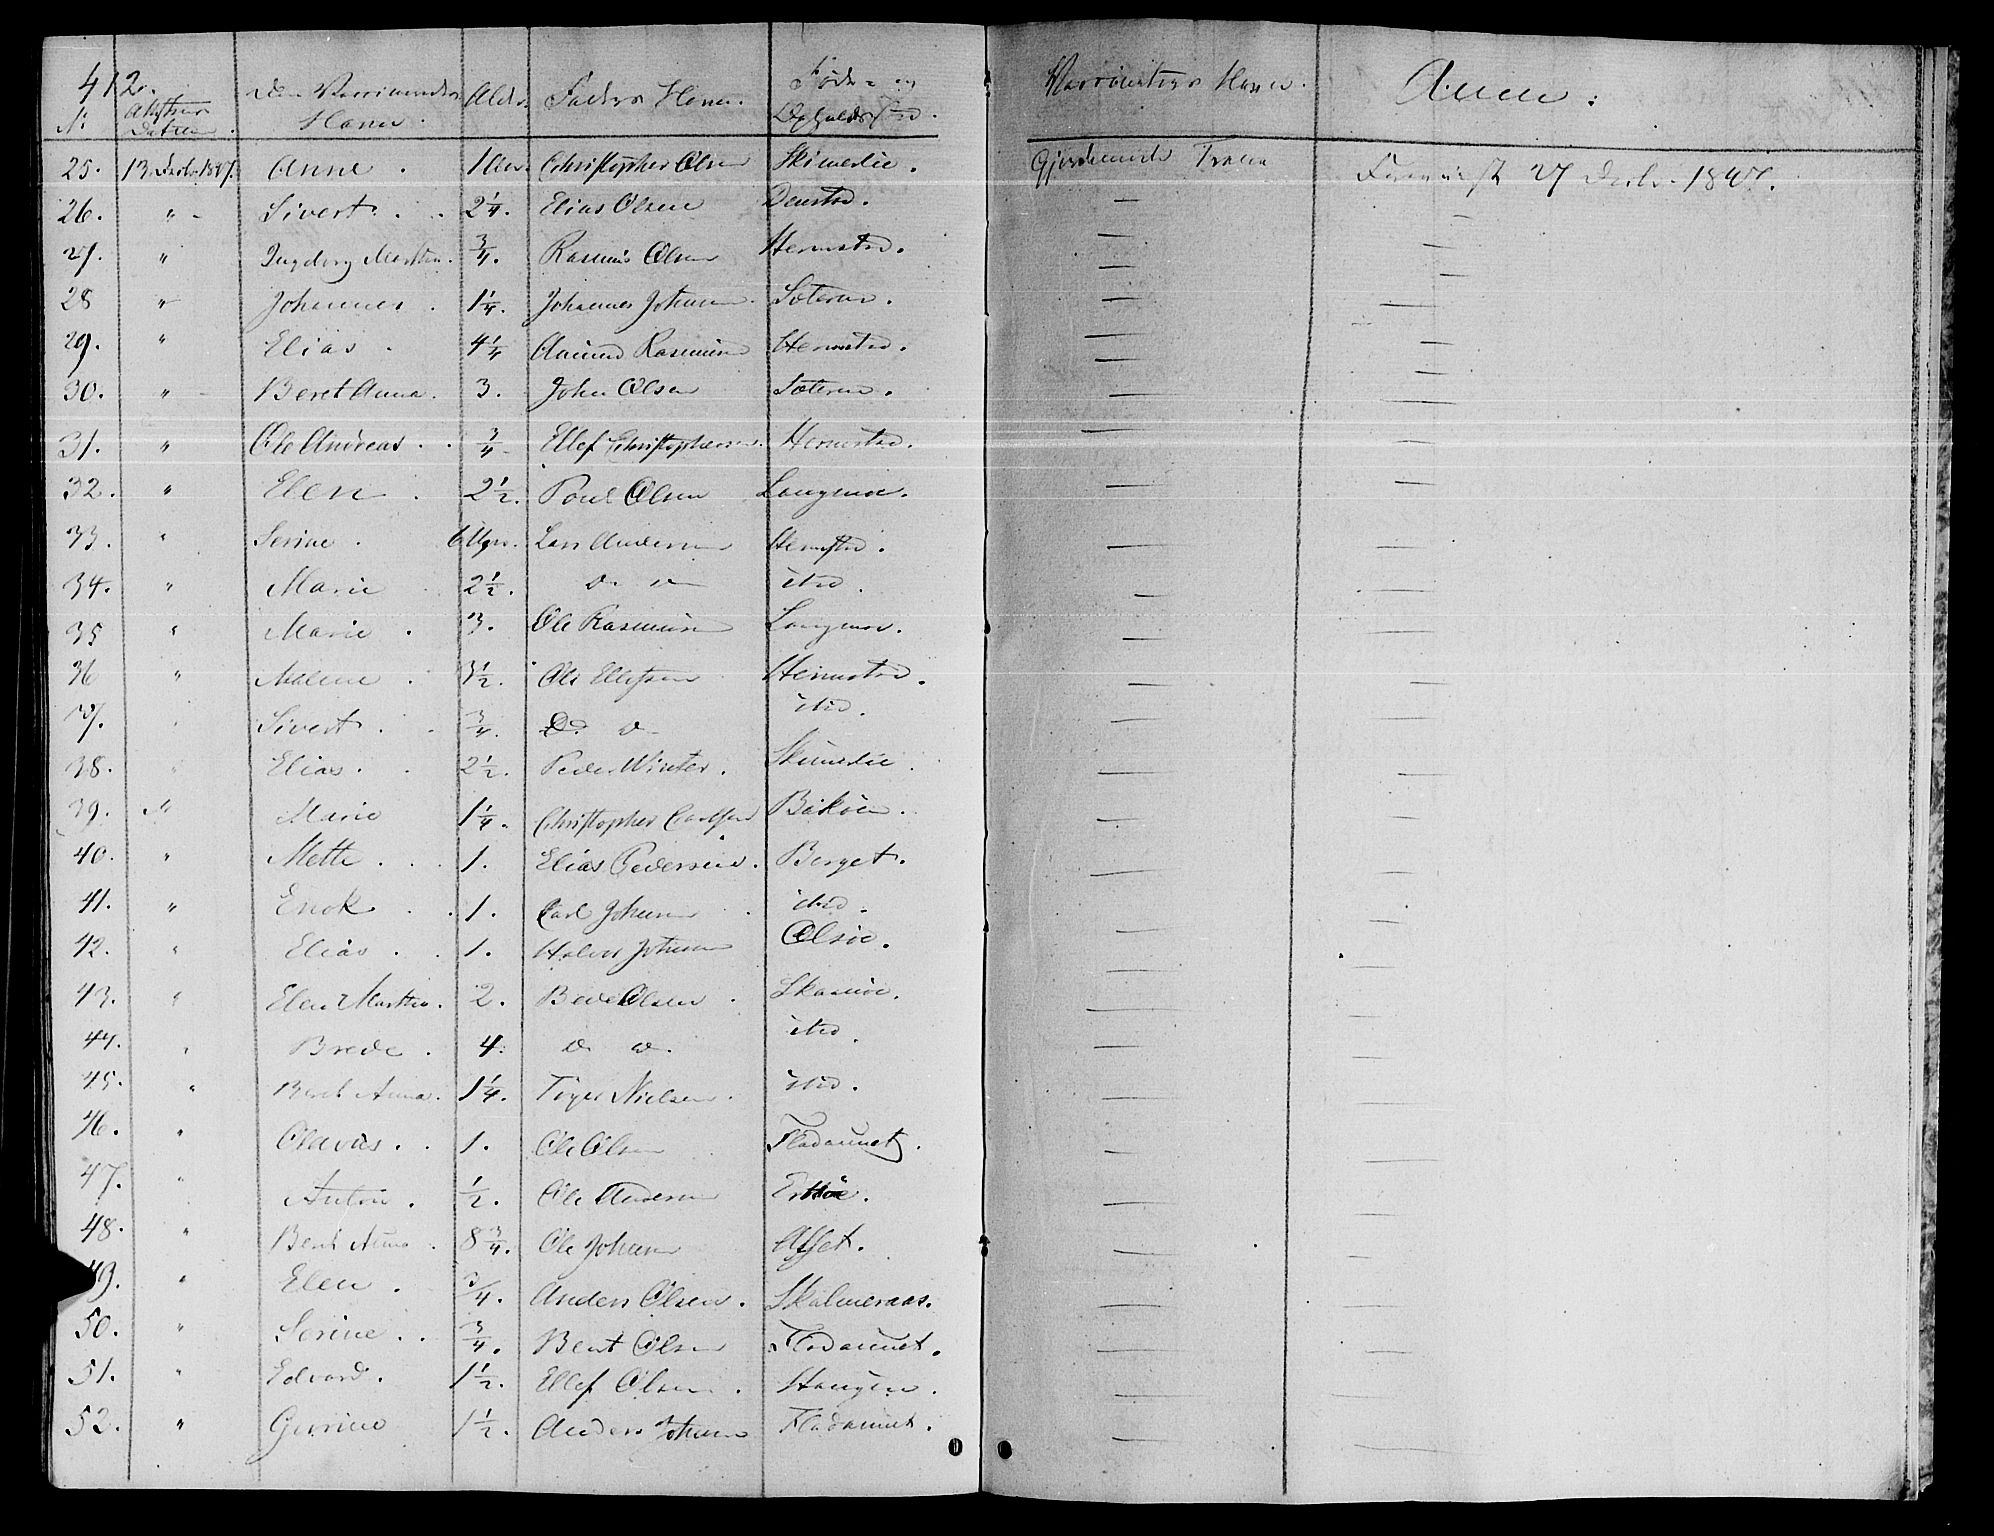 412.
N. Attestens Datum. Den Vaccineredes Navn. Alder. Faders Navn. Føde- og Opholdssted. Vaccinateurs Navn. Anm:
25. 13 Decbr 1847. Anne. 1 Aar. Christopher Olsen Skimelie. Gjordemoder Forevist 27 Decbr 1847.
26. " Sivert. 2 1/4. Elias Olsen Demstad. — —
27. " Ingeborg Marthea. 3/4. Rasmus Olsen Hermstad. — —
28 " Johannes. 1 1/4. Johannes Johnsen Sæteren. — —
29. " Elias. 4 1/4 Amund Rasmusen Hermstad. — —
30. " Beret Anna. 3. John Olsen Sæteren. — —
31. " Ole Andreas. 3/4 Ellef Christophersen. Hermstad. — —
32. " Elen. 2 1/2. Poul Olsen Langmoe. — —
33. " Serine. 6 Ugr. Lars Andersen Hermstad. — —
34. " Marie 2 1/2. d. o istd. — —
35 " Marie. 3. Ole Rasmusen Langmoe. — —
36 " Malene. 3 1/2. Ole Ellefsen Hermstad. — —
37. " Sivert. 3/4. D. o istd. — —
38. " Elias. 2 1/2. Peder Winter. Skimelie. — —
39. " Marie 1 1/4. Christopher Carlsen Bakøen. — —
40. " Mette. 1. Elias Pedersen. Berget. — —
41. " Enok. 1. Carl Johnsen istd. — —
42. " Elias. 1. Halvor Johnsen Olsøe. — —
43. " Elen Marthea. 2. Brede Olsen. Skarmoe. — —
44. " Brede. 4. d. o. istd. — —
45. " Beret Anna. 1 1/4. Tiger Nielsen. istd. — —
46. " Olavus. 1. Ole Olsen Fladaunet. — —
47. " Anton. 1/2. Ole Andersen — —
48. " Beret Anna. 8 3/4. Ole Johnsen Asset. — —
49. " Elen. 3/4. Anders Olsen. Skalmeraas. — —
50. " Serine. 3/4. Bent Olsen Fladaunet. — —
51. " Edvard. 1 1/2. Ellef Olsen. Haugen. — —
52. " Gurine 1 1/2. Anders Johnsen Fladaunet. — —